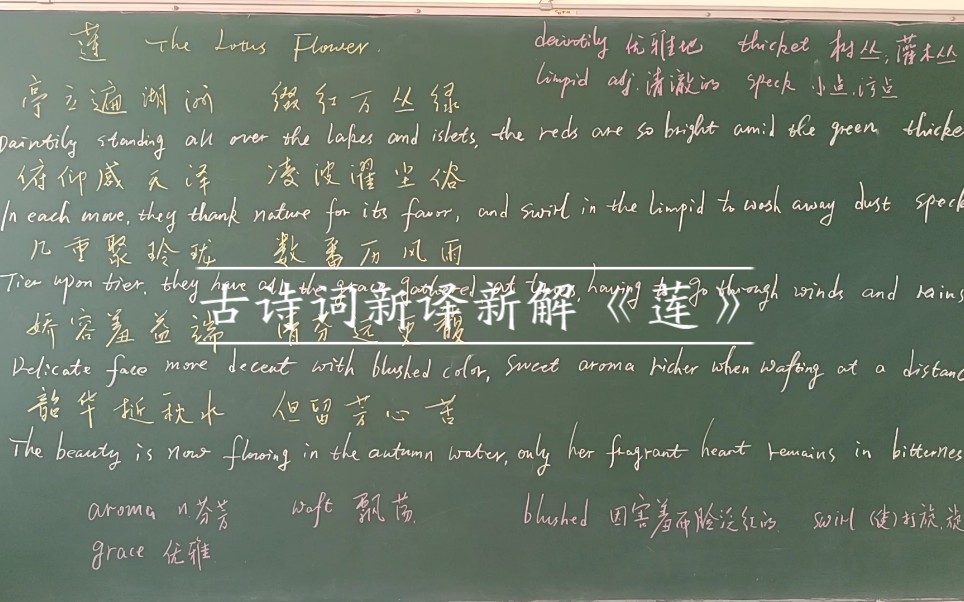 莲 The Lotus Flower.
daintily 优雅地 thicket 树丛,灌木丛
limpid adj.清澈的 speck 小点,污点
亭立遍湖洲 缀红万丛绿
Daintily standing all over the lakes and islets, the reds are so bright amid the green thicke
俯仰感天泽 凌波濯尘俗
In each move, they thank nature for its favor, and swirl in the limpid to wash away dust speck
几重聚玲珑 数番历风雨
Tier upon tier, they have all the grace gathered at having to go through winds and rains
古诗词新译新解《莲》
娇容羞益端 清芬远更馥
Delicate face more decent with blushed color, sweet aroma richer when wafting at a distanc
韶华逝秋水 但留芳心苦
The beauty is now flowing in the autumn water, only her fragrant heart remains in bitternes
aroma n.芬芳 waft 飘荡 blushed 因害羞而脸泛红的 swirl (使)打旋,旋
grace 优雅